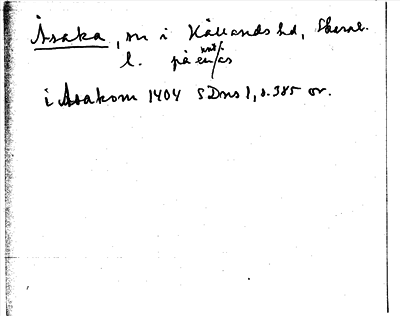 Åsaka, sn i Kållands hd, Skarab.
l. på en ås
i Asakom 1404 SDns 1, s. 385 or.